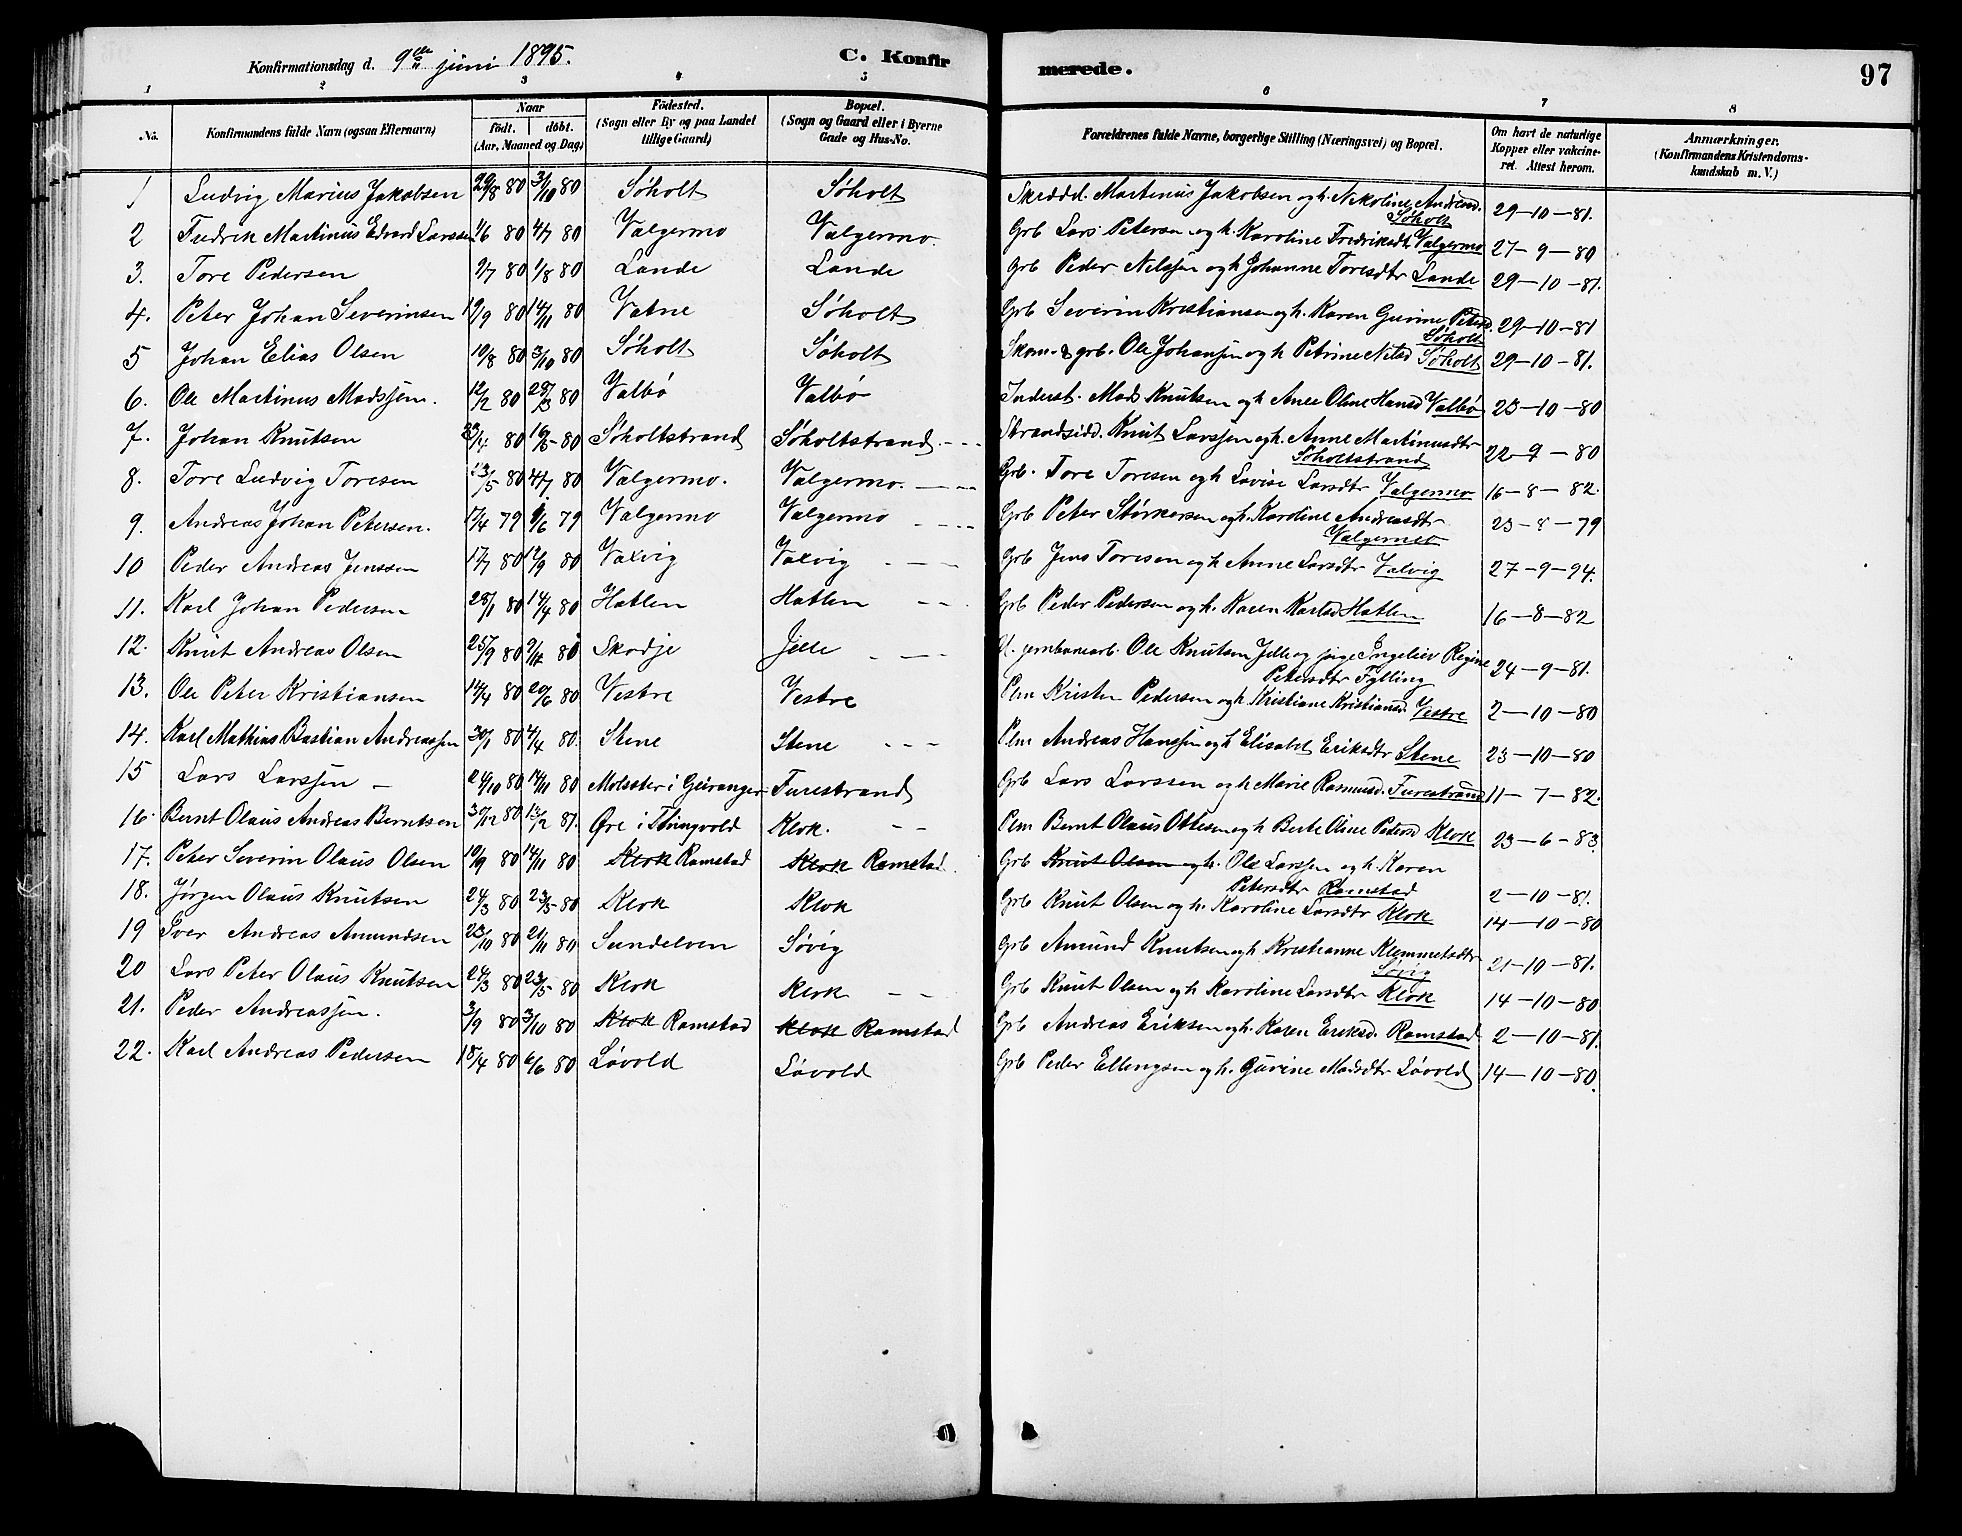 Konfirmationsdag d. 9de juni 1895. C. Konfir
merede. 97
1 2 3 4 5 6 7 8
No. Konfirmandens fulde Navn (ogsaa Efternavn) Naar født. døbt. (Aar, Maaned og Dag) Fødested. (Sogn eller By og paa Landet tillige Gaard) Bopæl. (Sogn og Gaard eller i Byerne Gade og Hus-No.
Forældrenes fulde Navne, borgerlige Stilling (Næringsvei) og Bopæl. Om havt de naturlige Kopper eller vakcineret. Attest herom. Anmærkninger. (Konfirmandens Kristendomskundskab m. V.)
1 Ludvig Marius Jakobsen 29/8 80 3/10 80 Søholt Søholt Skrædd. Martinus Jakobsen og h. Nikoline Andersd. Søholt 29-10-81.
2 Fredrik Martinus Edvard Larssen 1/6 80 4/7 80 Valgermo Valgermo. Grb Lars Petersen og h. Karoline Fredriksdtr Valgermo 27-9-80
3. Tore Pedersen 9/7 80 1/8 80 Lande Lande Grb Peder Nilssen og h Johanne Toresdtr Lande 29-10-81.
4. Peter Johan Severinsen 19/9 80 14/11 80 Vatne Søholt Grb Severin Kristiansen og h. Karen Gurine Peters. Søholt 29-10-81
5 Johan Elias Olsen 19/8 80 3/10 80 Søholt Søholt Skom. & grb. Ole Johansen og h Petrine Nilsd Søholt 29-10-81.
6. Ole Martinus Madssen. 12/2 80 29/3 80 Valbø Valbø Inderst. Mads Knutsen og h Ane Oline Hansd Valbø 23-10-80
7. Johan Knutsen 23/4 80 16/5-80 Søholtstrand Søholtstrand. --- Strandsidd. Knut Larssen og h. Anne Martinusdtr Søholtstrand 22-9-80
8. Tore Ludvig Toresen 23/5 80 4/7 80 Valgermo. Valgermo. --- Grb. Tore Toresen og h Lovise Larsdtr Valgermo 16-8-82.
9. Andreas Johan Petersen. 17/4 79 1/6 79 Valgermo Valgermo --- Grb Peter Størkersen og h. Karoline Andreasdtr Valgermo 23-8-79
10 Peder Andreas Jenssen 17/7 80 12/9 80 Vaxvig Vaxvig --- Grb Jens Toresen og h Anne Larsdtr Valvig 27-9-94.
11. Karl Johan Pedersen 28/1 80 14/4 80 Hatlen Hatlen -- Grb Peder Pedersen og h. Karen Karlsd Hatlen 16-8-82
12. Knut Andreas Olsen 25/9 80 9/4 80 Skodje Jelle --- U. jernbanearb. Ole Knutsen Jelle og pige Ingeliev Regine Petersdtr Fylling 24-9-81.
13. Ole Peter Kristiansen 14/4 80 20/6 80 Vestre Vestre Plm Kristen Pedersen og h Kristiane Kristiansd. Vestre 2-10-80
14. Karl Mathias Bastian Andreassen 30/1 80 4/4 80. Stene Stene --- Plm Andreas Hanssen og h Elisabet Eriksdtr Stene 23-10-80
15 Lars Larssen - 24/10 80 14/11 80 Molsæter i Geiranger Furestrand Grb Lars Larssen og h Marie Rasmusd. Furestrand 11-7-82.
16. Bernt Olaus Andreas Berntsen 30/12 80 13/2 81. Øre i Thingvold Klok. -- Plm Bernt Olaus Ottesen og h Berte Oline Pedersd Klok 23-6-83.
17. Peter Severin Olaus Olsen 19/9 80 14/11 80 Klok Ramstad Klok Ramstad. Grb Knut Olsen og h. Ole Larssen og h Karen Petersdtr Ramstad 2-10-81.
18. Jørgen Olaus Knutsen 24/3 80 23/5-80 Klok Klok Grb Knut Olsen og h. Karoline Larsdtr Klok 14-10-80
19 Iver Andreas Amundsen 23/10 80 21/11 80 Sundelven Søvig Grb Amund Knutsen og h Kristianne Klemmetsdtr Søvig 21-10-81.
20 Lars Peter Olaus Knutsen 24/3 80 23/5 80 Klok Klok -- Grb Knut Olsen og h Karoline Larsdtr Klok 14-10-80
21. Peder Andreassen. 3/9 80 3/10 80 Klok Ramstad Klok Ramstad Grb Andreas Eriksen og h. Karen Eriksd. Ramstad 2-10-81.
22. Karl Andreas Pedersen 18/4 80 6/6 80 Løvold Løvold Grb Peder Ellengsen og h. Gurine Madsdtr Løvold 14-10-80.